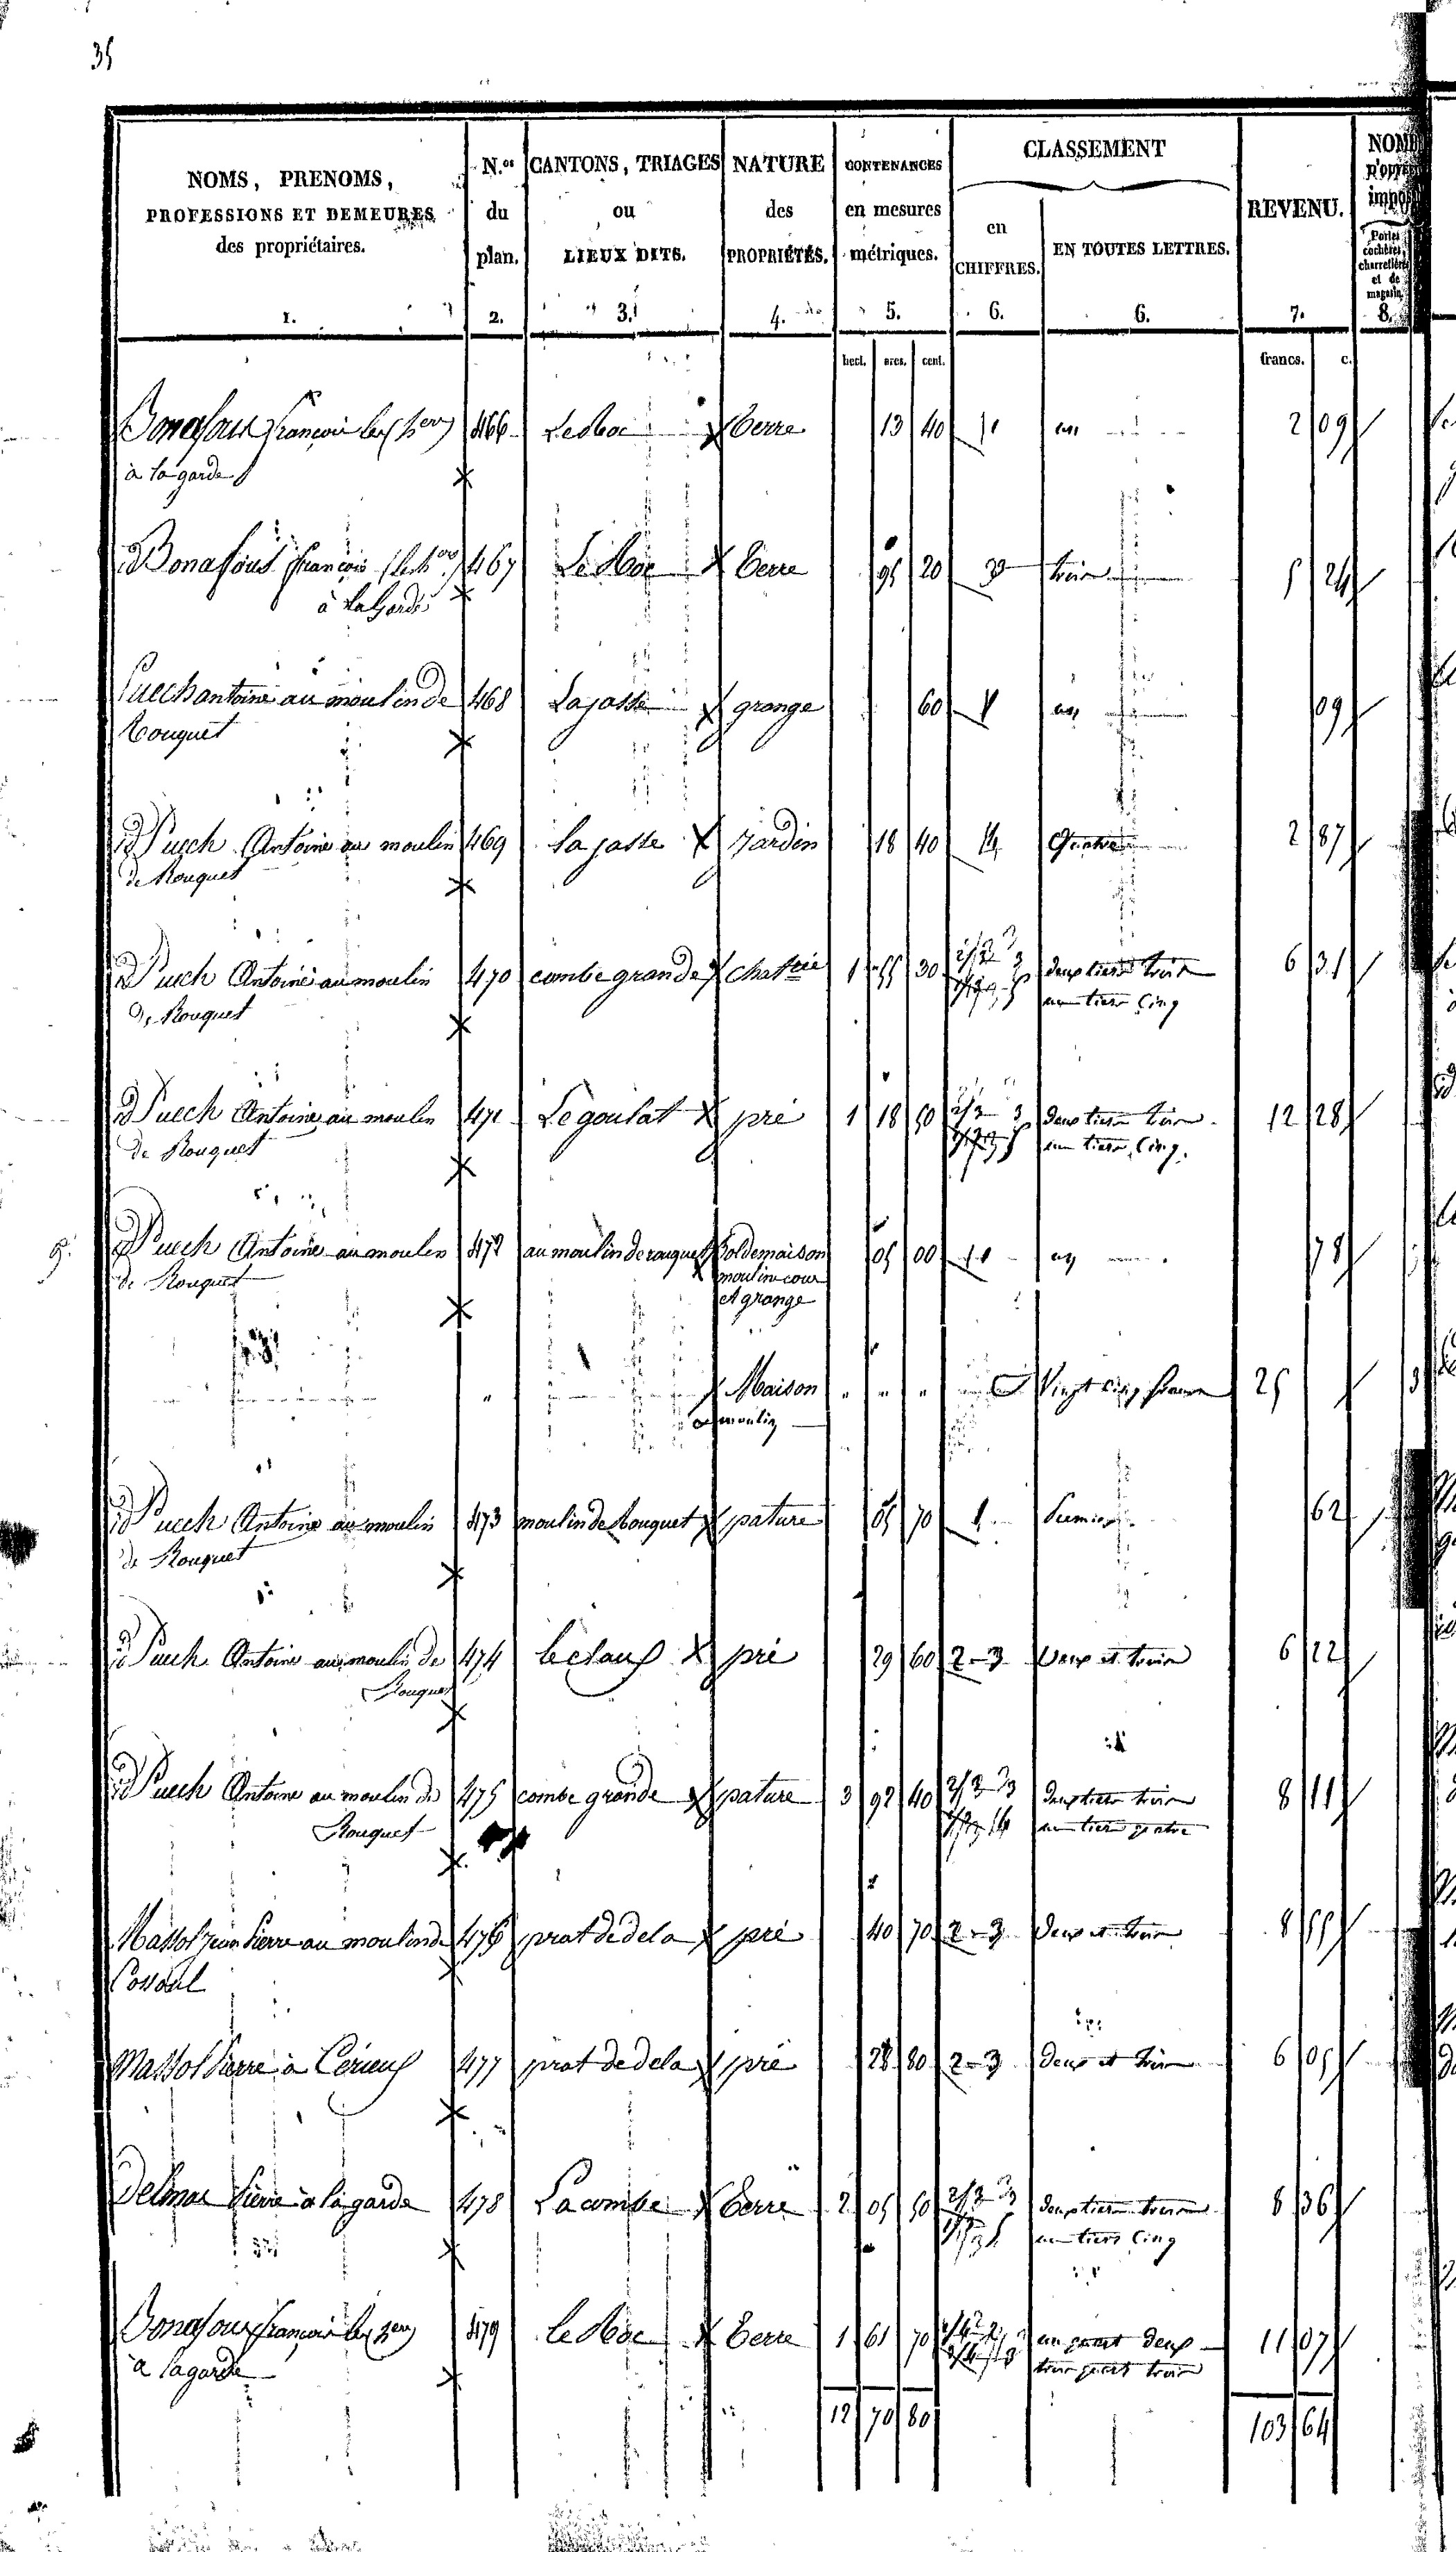 35
NOMS, PRENOMS,
PROFESSIONS ET DEMEURES
des propriétaires.
N.os
du
plan.
CANTONS, TRIAGES
ou
LIEUX DITS.
NATURE
des
PROPRIÉTÉS.
CONTENANCES
en mesures
métriques.
CLASSEMENT
en
CHIFFRES.
EN TOUTES LETTRES.
REVENU.
1. 2. 3. 4. 5. 6. 6. 7. 8.
hect. ares. cent. francs. c.
Bonafous françois les hers 466 Le Roc terre 13 40 1 un 2 09
à la garde
Bonafous françois les hers 467 Le Roc terre 95 20 3 trois 5 24
à La Garde
Puech antoine au moulin de 468 La jasse grange 60 1 un 09
rouquet
Puech Antoine au moulin 469 La jasse jardin 18 40 4 Quatre 2 87
de Rouquet
Puech Antoine au moulin 470 combe grande 1 55 30 2/3 3 deux tiers trois 6 31
de Rouquet 1/3 5 un tiers cinq
Puech Antoine au moulin 471 Le goulat pré 1 18 50 2/3 3 deux tiers trois 12 28
de Rouquet 1/3 5 un tiers cinq.
Puech Antoine au moulin 472 au moulin de rouquet sol de maison 05 00 1 un 78
de Rouquet moulin cour
et grange
Maison Vingt cinq francs 25
et moulin
Puech Antoine au moulin 473 moulin de Rouquet pature 05 70 1 Premier 62
de Rouquet
Puech Antoine au moulin de 474 Le claux pré 29 60 2-3 Deux et trois 6 22
Rouquet
Puech Antoine au moulin de 475 combe grande pature 3 92 40 2/3 3 deux tiers trois 8 11
Rouquet 1/3 4 un tiers quatre
Massol jean Pierre au moulin de 476 prat de dela pré 40 70 2-3 deux et trois 8 55
Massol Pierre à 477 prat de dela pré 28 80 2-3 deux et trois 6 05
Delmas Pierre à la garde 478 La combe terre 2 05 50 2/3 3 deux tiers trois 8 36
1/3 5 un tiers cinq
Bonafous françois les hers 479 Le Roc terre 1 61 70 1/4 2 un quart deux 11 07
à la garde 3/4 3 trois quart trois
12 70 80 103 64